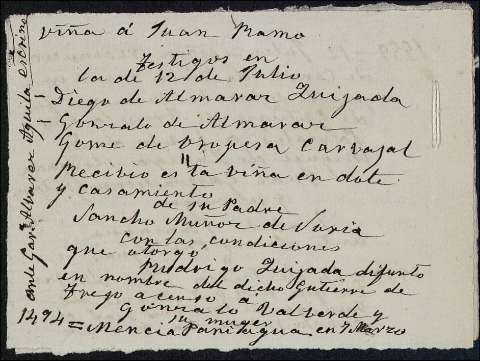 viña á Juan Ramo
Testigos en
la de 12 de Julio
Diego de Almaraz Quijada
Gonzalo de Almaraz
Gome de Oropesa Carvajal
Recibio esta viña en dote
y casamiento
de su Padre
Sancho Muñoz de Soria
con las condiciones
que otorgo
Rodrigo Quijada difunto
en nombre del dicho Gutierre de
Trejo a censo a
Gonzalo Valverde y
su muger
1494 = Mencia Paniagua en 7 Marzo
ante Garª Alvarez Aguila escrino